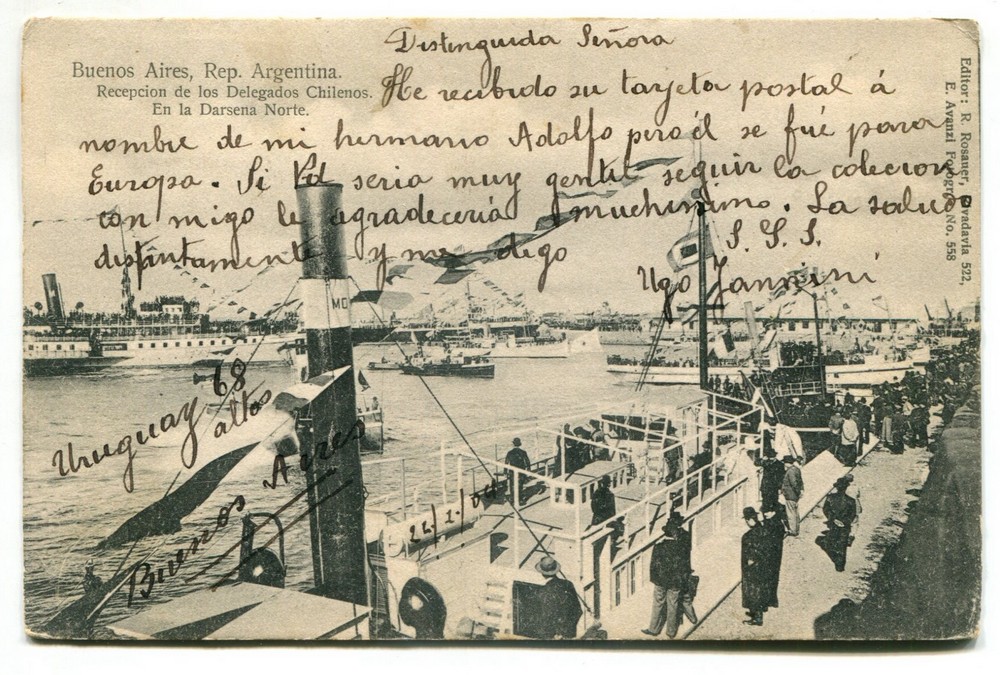 Buenos Aires, Rep. Argentina.
Recepcion de los Delegados Chilenos.
En la Darsena Norte.
Editor: R. Rosauer, Rivadavia 522,
E. Avanzi Fotografo No. 558
Distinguida Señora
He recibido su tarjeta postal á
nombre de mi hermano Adolfo pero él se fué para
Europa. Si Vd seria muy gentil seguir la colecion
con migo le agradeceria muchisimo. La saluda
distintamente y me digo S. S. S.
Ugo Jannini
Uruguay 68
altos
Buenos Aires
MO